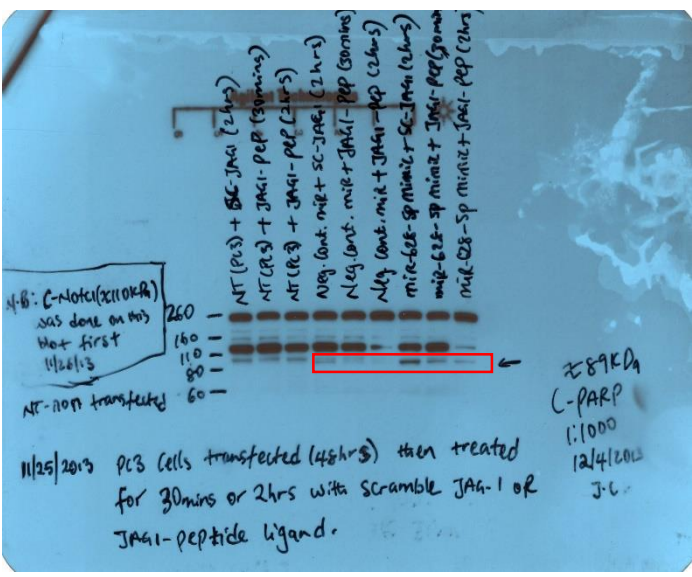 NT (PC3) + SC-JAG1 (2hrs)
NT (PC3) + JAG1-PEP (30mins)
NT (PC3) + JAG1-PEP (2hrs)
Neg. Cont. miR + SC-JAG1 (2hrs)
Neg. Cont. miR + JAG1-PEP (30mins)
Neg. Cont. miR + JAG1-PEP (2hrs)
miR-628-5p mimic + SC-JAG1 (2hrs)
miR-628-5p mimic + JAG1-PEP (30mins)
miR-628-5p mimic + JAG1-PEP (2hrs)
N.B: C-Notch1(≈110KDa)
was done on this
blot first
11/26/13
260 -
160 -
110 -
80 -
60 -
NT-non transfected
← ≈89KDa
C-PARP
1:1000
12/4/2013
J.C.
11/25/2013 PC3 Cells transfected (48hrs) then treated
for 30mins or 2hrs with scramble JAG-1 OR
JAG1-peptide ligand.